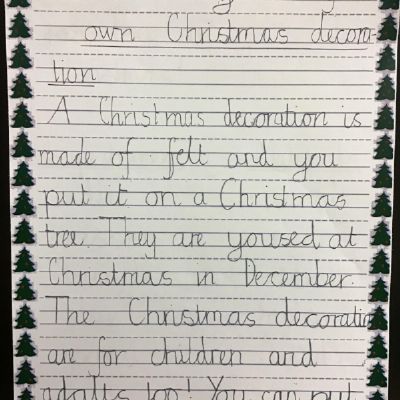 own Christmas decora-
tion
A Christmas decoration is
made of felt and you
put it on a Christmas
tree. They are yoused at
Christmas in December.
The Christmas decoration
are for children and
adults too! You can put